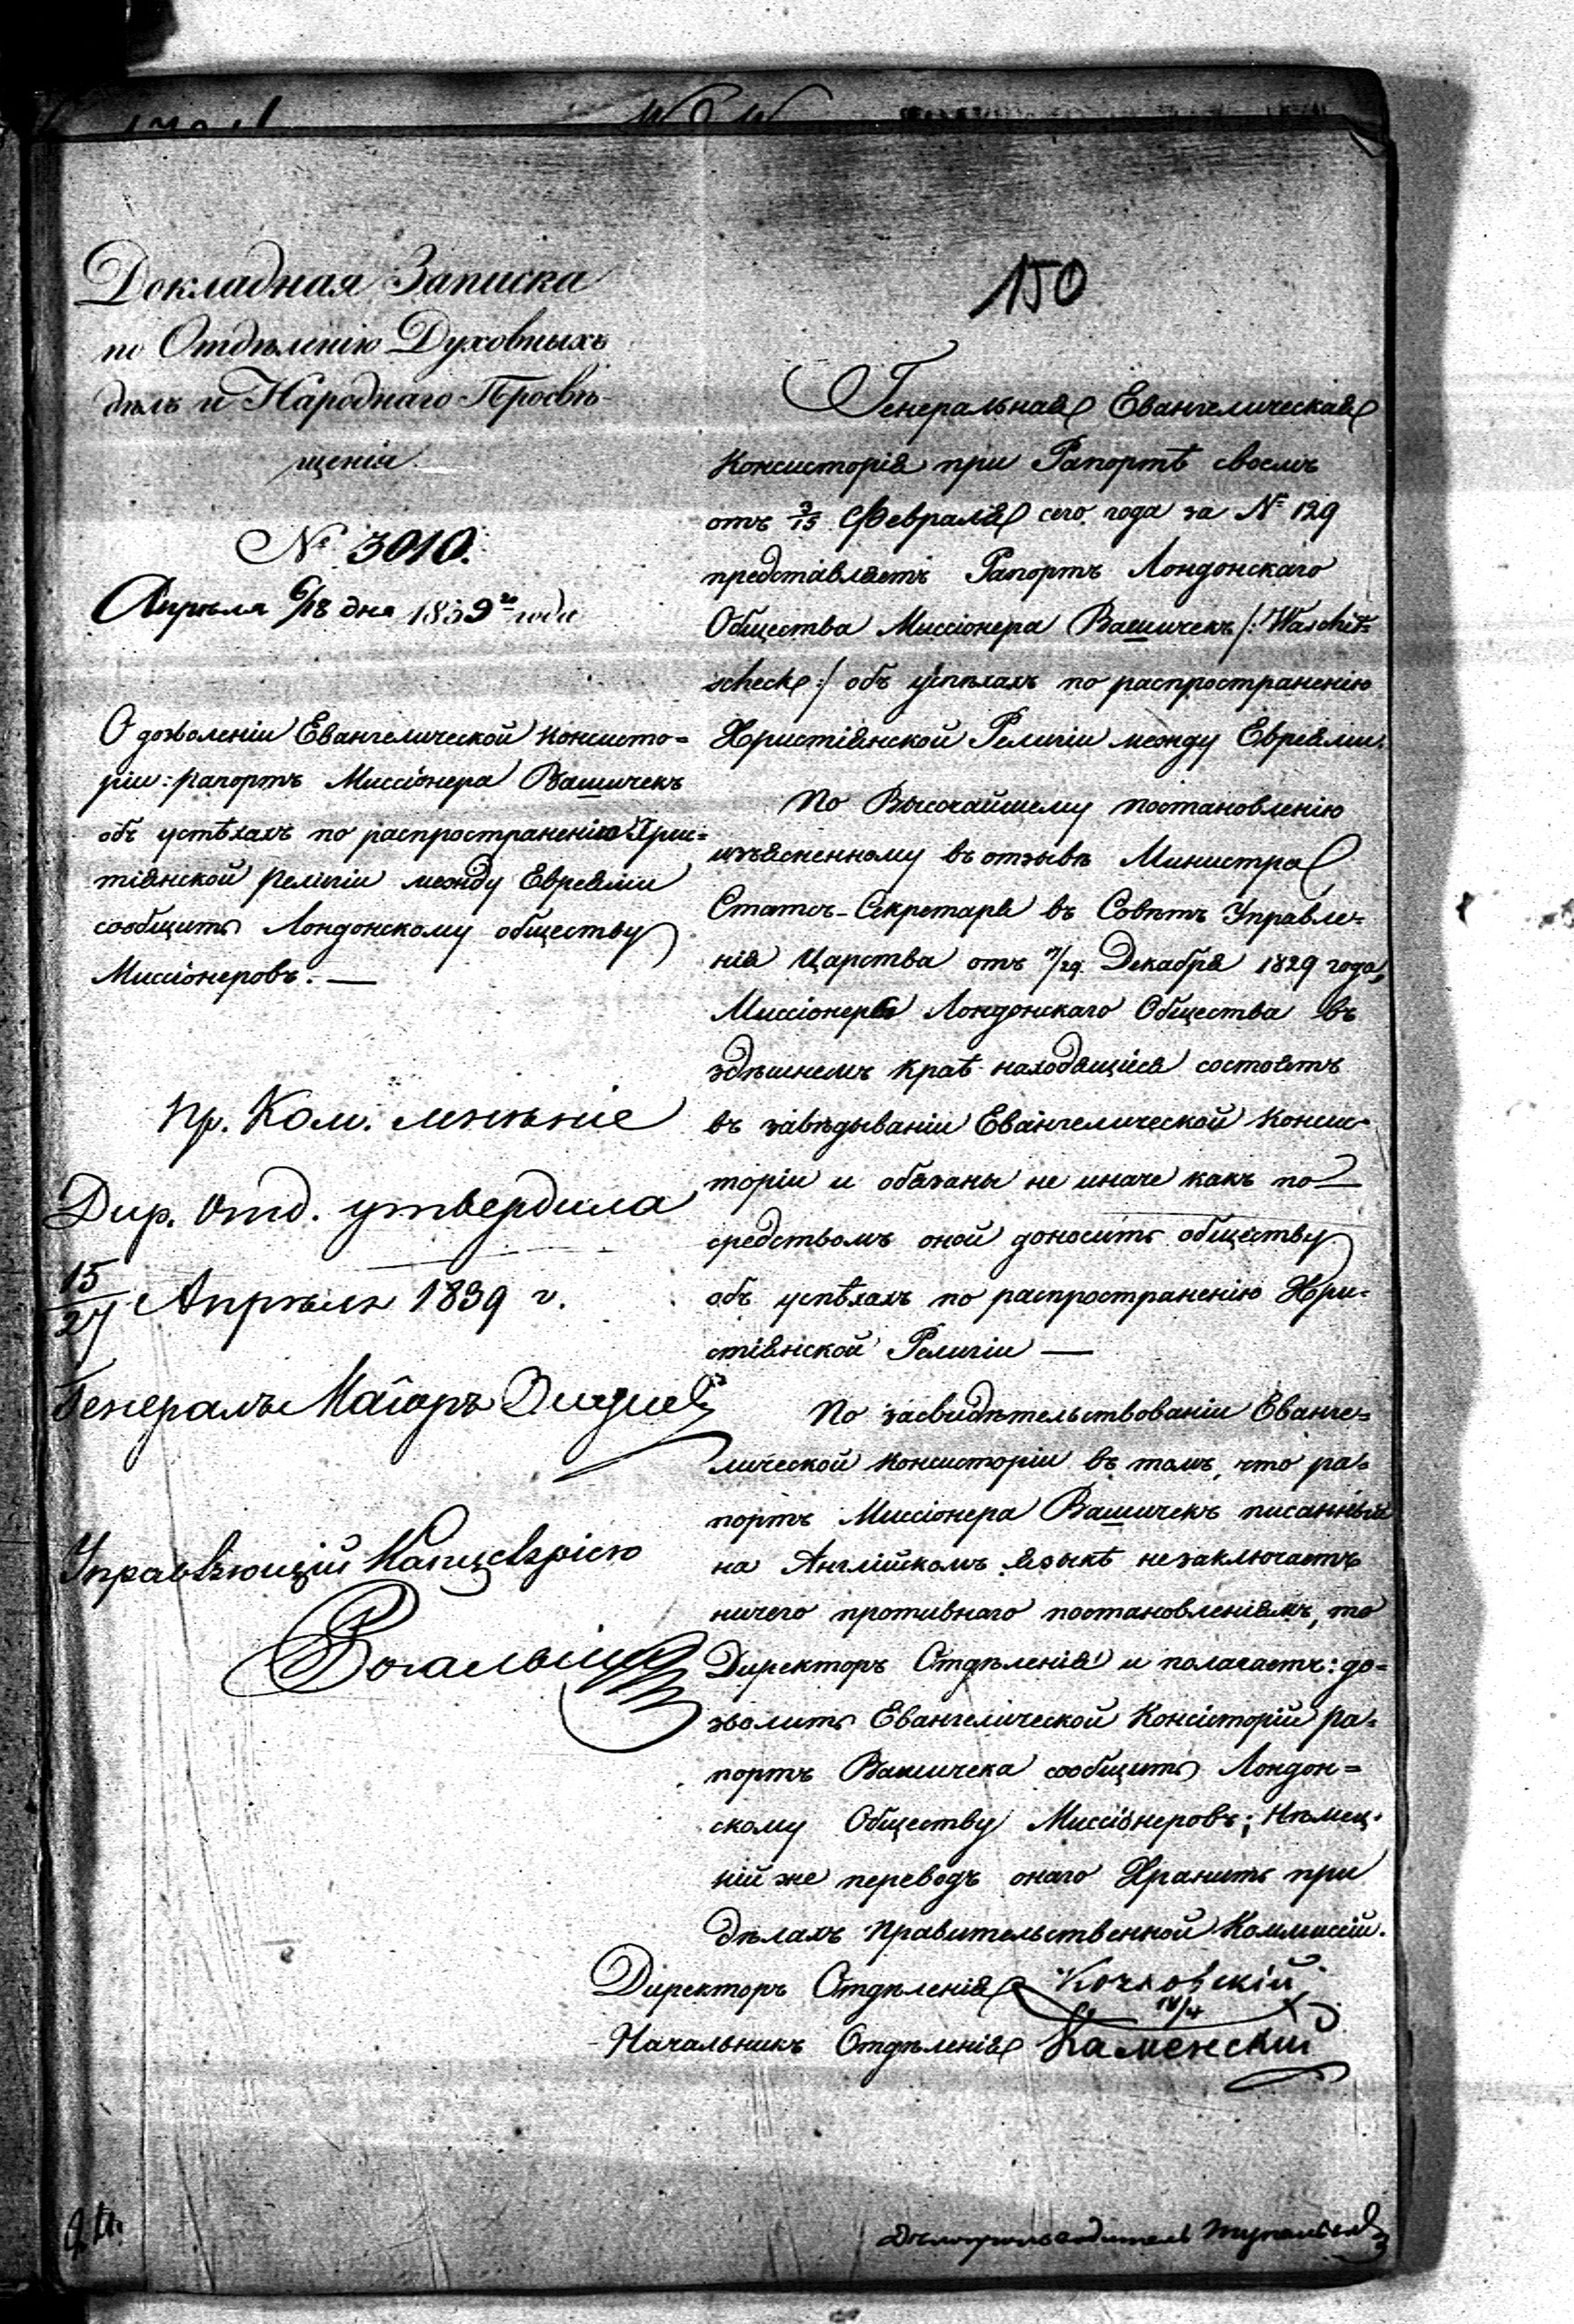 Докладная Записка
по Отдѣленію Духовныхъ
дѣлъ и Народнаго Просвѣ-
щенія.
№ 3010.
Апрѣля 6/18 дня 1839го года
О дозволеніи Евангелической Консисто=
ріи: рапортъ Миссіонера Вашичекъ
объ успѣхахъ по распространенію Хрис=
тіянской религіи между Евреями
сообщить Лондонскому обществу
Миссіонеровъ. —
Пр. Ком. мнѣніе
Дир. Отд. утвердила
15/27 Апрѣля 1839 г.
Генералъ Маіоръ
Управляющій Канцеляріею
150
Генеральная Евангелическая
Консисторія при Рапортѣ своемъ
отъ 3/15 Февраля сего года за № 129
представляетъ Рапортъ Лондонскаго
Общества Миссіонера Вашичекъ /: Waschit=
scheck :/ объ успѣхахъ по распространенію
Христіянской Религіи между Евреями.
По Высочайшему постановленію
изъясненному въ отзывѣ Министра
Статсъ-Секретаря въ Совѣтъ Управле=
нія Царства отъ 17/29 Декабря 1829 года,
Миссіонеры Лондонскаго Общества въ
здѣшнемъ краѣ находящіеся состоятъ
въ завѣдываніи Евангелической Консис-
торіи и обязаны не иначе какъ по=
средствомъ оной доносить обществу
объ успѣхахъ по распространенію Хри=
стіянской Религіи —
По засвидѣтельствованіи Еванге=
лической Консисторіи въ томъ, что ра=
портъ Миссіонера Вашичекъ писанный
на Англійкомъ языкѣ незаключаетъ
ничего противнаго постановленіямъ, то
Директоръ Отдѣленія и полагаетъ: до=
зволить Евангелической Консисторіи ра=
портъ Вашичека сообщить Лондон=
скому Обществу Миссіонеровъ; Нѣмец=
кій же переводъ онаго Хранить при
дѣлахъ Правительственной Коммиссіи.
Директоръ Отдѣленія
Начальникъ Отдѣленія Каменскій
Дѣлопроизводитель